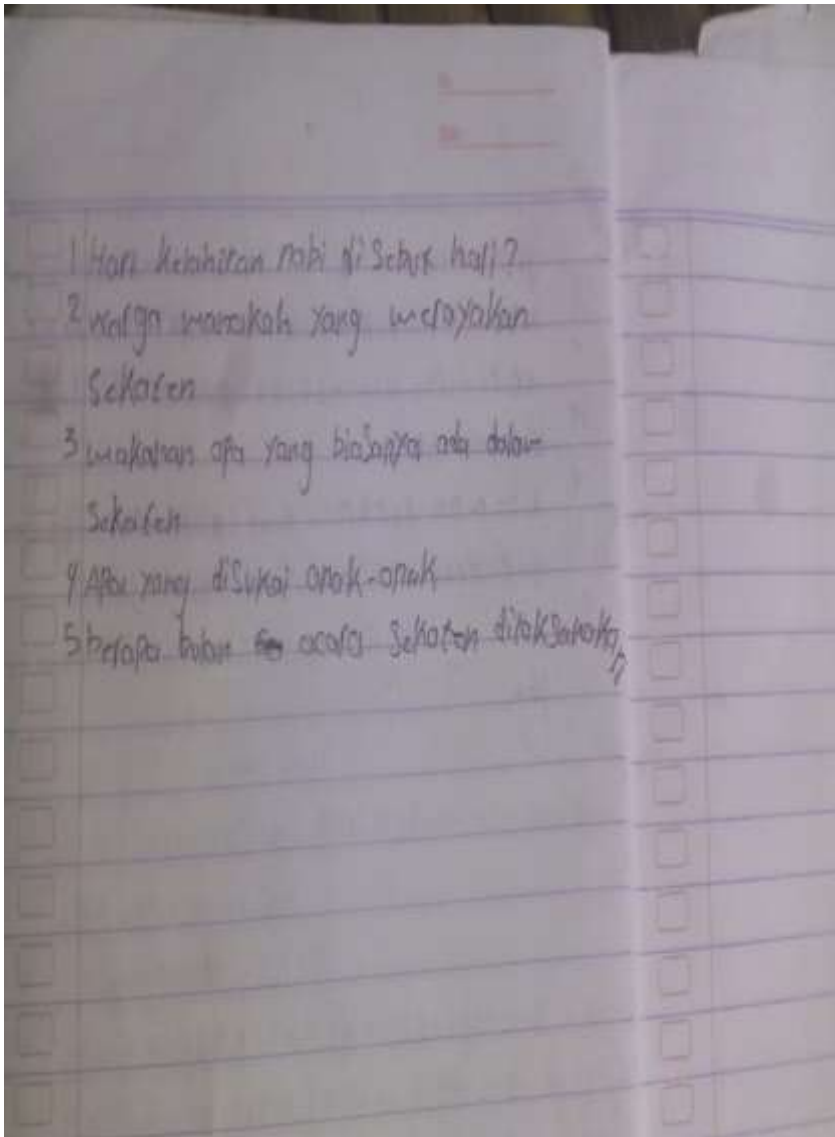 1 Hari kelahiran nabi di sebut hari?
2 warga manakah yang merayakan
Sekaten
3 makanan apa yang biasanya ada dalam
Sekaten
4 Apa yang disukai anak-anak
5 berapa bulan acara Sekaten dilaksanakan